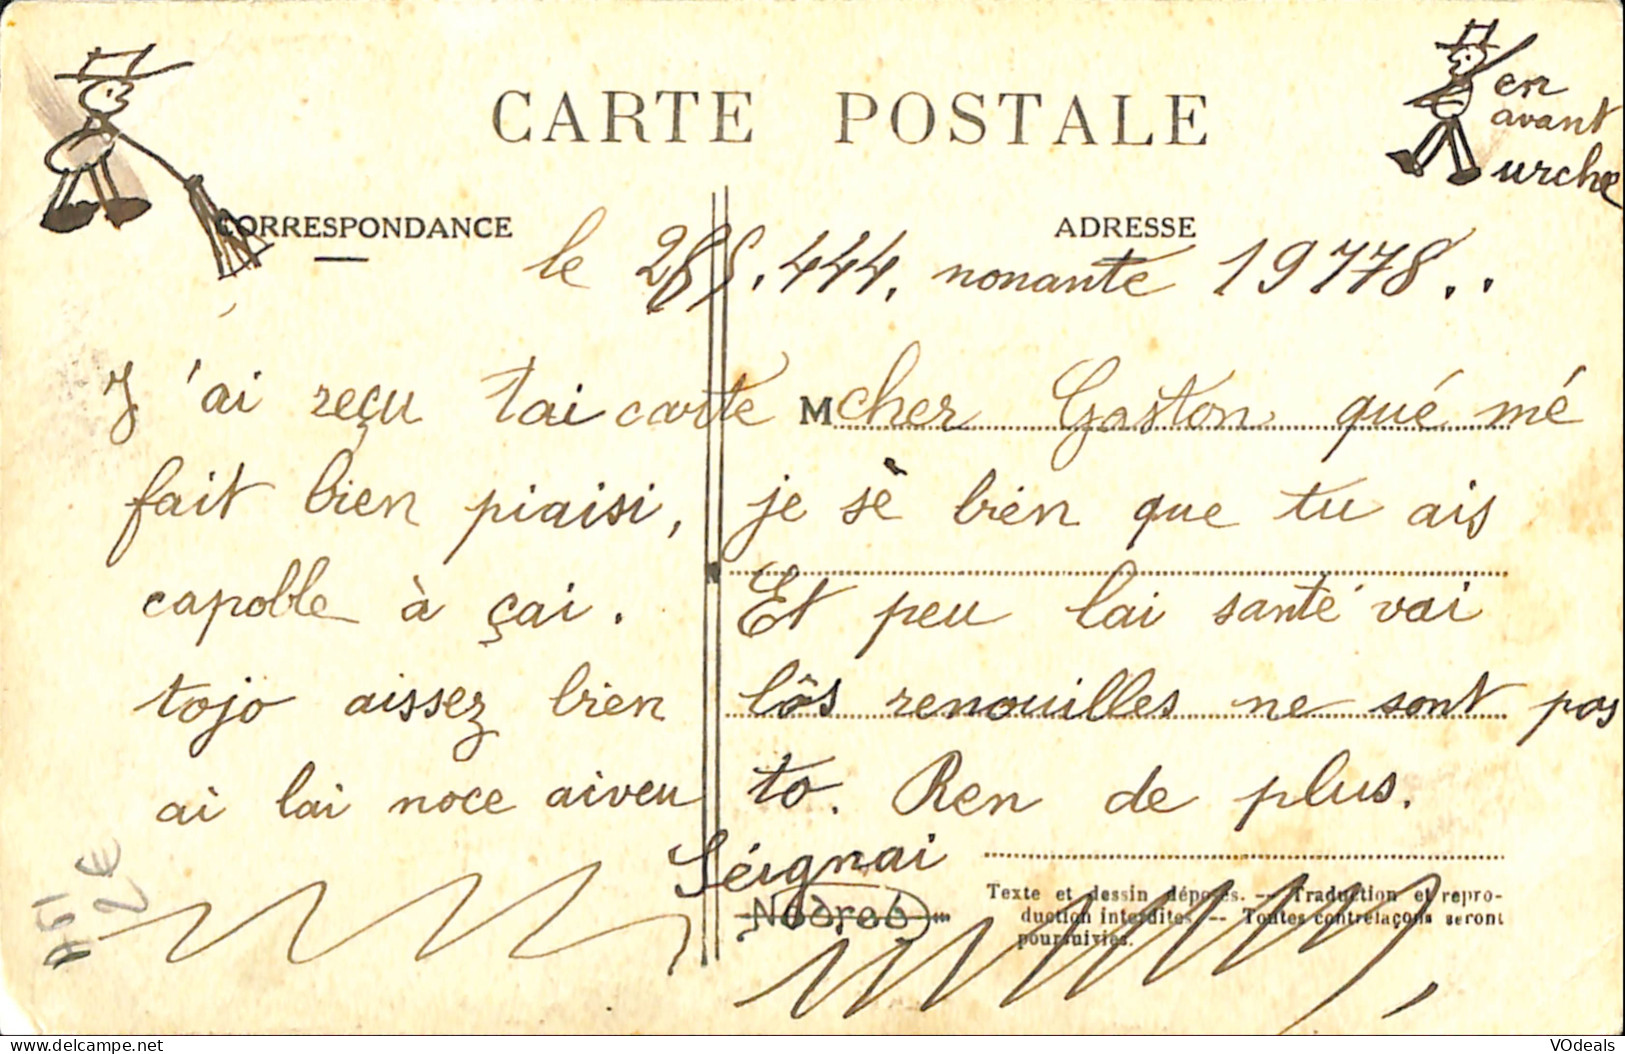 CARTE POSTALE
en
avant
urche
CORRESPONDANCE
ADRESSE
le 285.444. nonante 19778..
J'ai reçu tai carte
fait bien piaisi,
capoble à çai.
tojo aissez bien
ai lai noce aiveu
M cher Gaston qué mé
je sè bien que tu ais
Et peu lai santé vai
lôs renouilles ne sont pas
to. Ren de plus.
Séignai
Nodreb
Texte et dessin déposés. — Traduction et repro-
duction interdites. — Toutes contrefaçons seront
poursuivies.
A61
2€
VOdeals